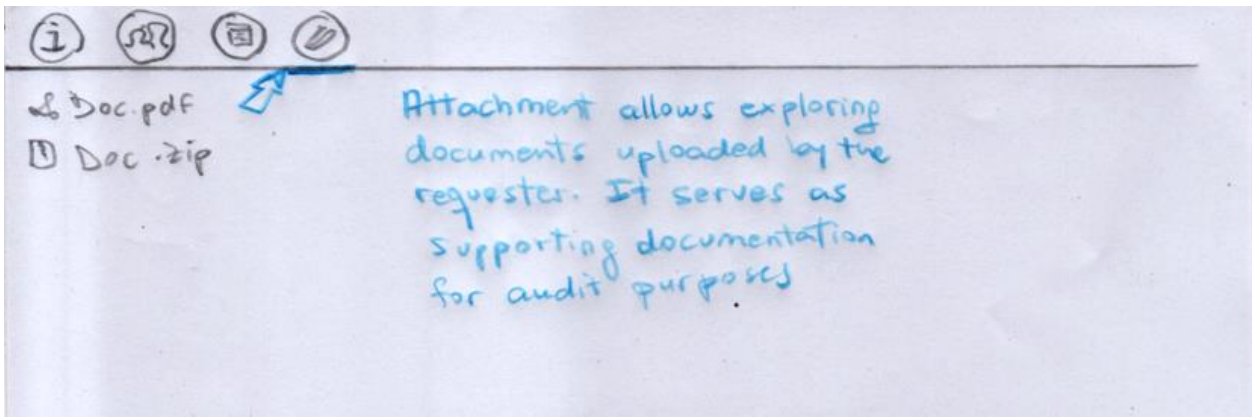 i
Doc.pdf
Doc.zip
Attachment allows exploring
documents uploaded by the
requester. It serves as
supporting documentation
for audit purposes